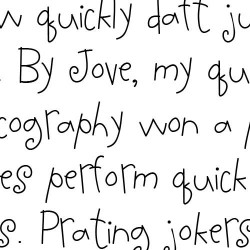 w quickly daft ju
. By Jove, my qu
cography won a p
es perform quick
s. Prating jokers